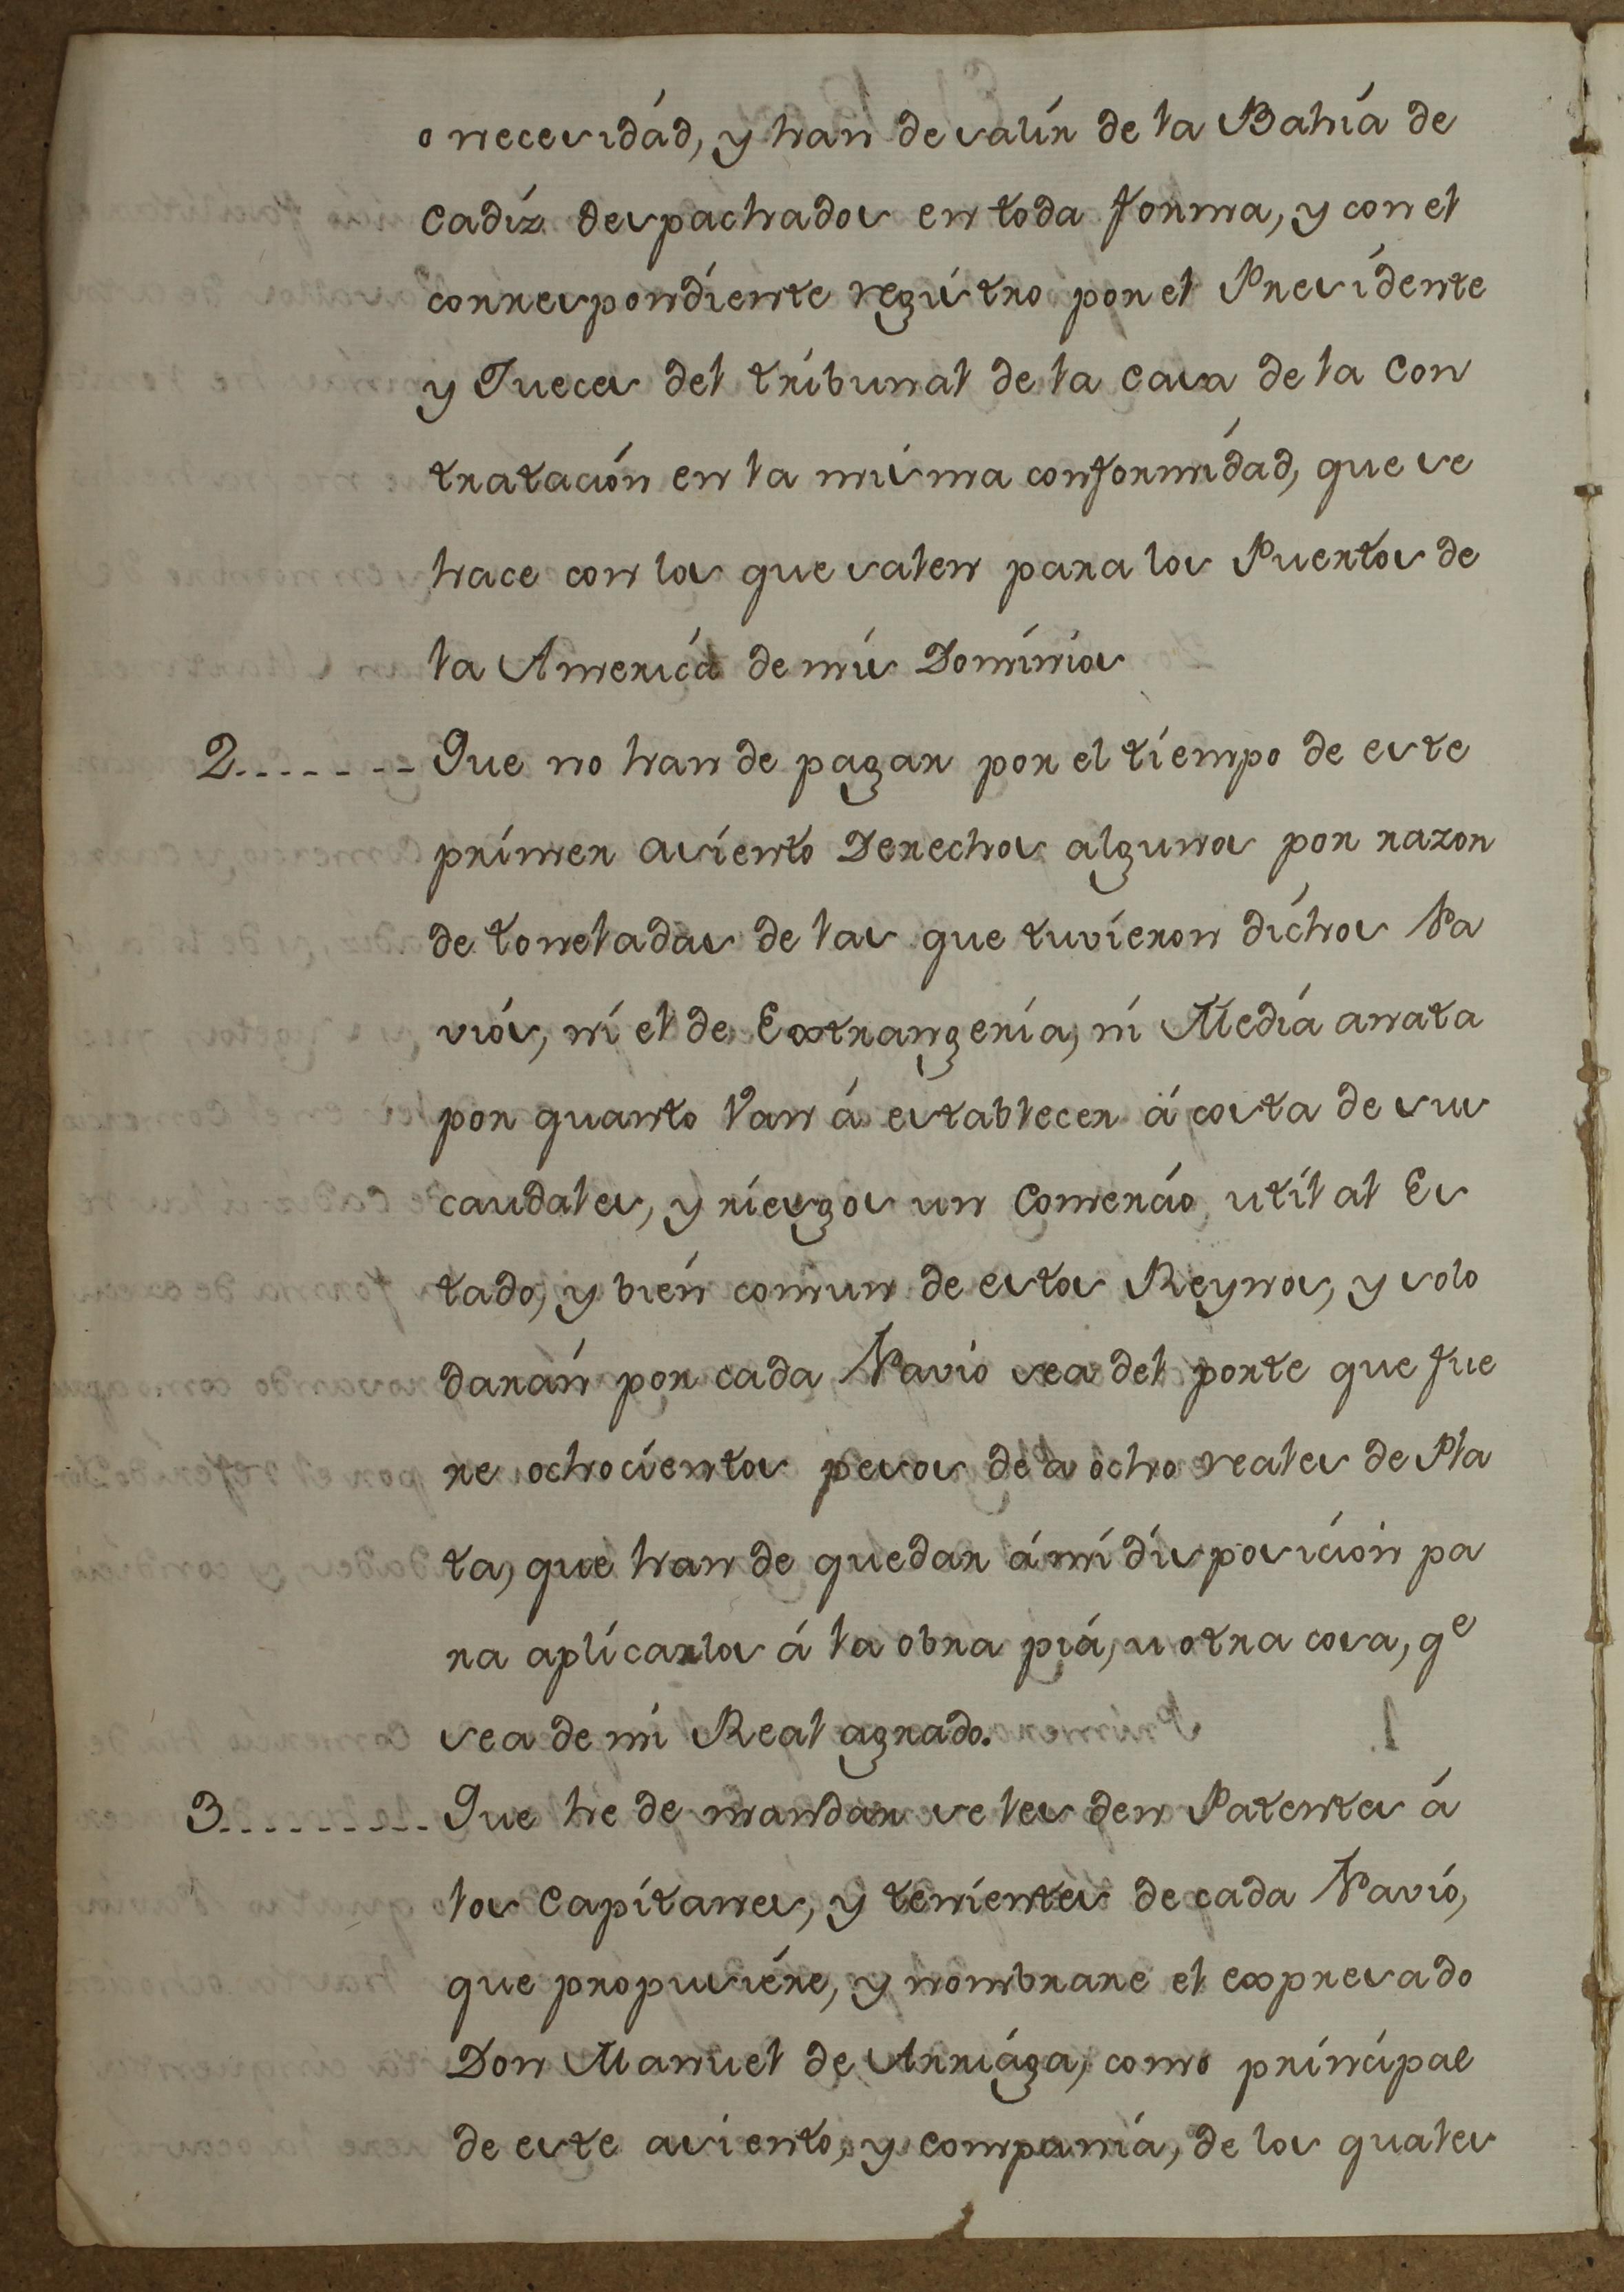 o necesidád, y han de salír de la Bahía de
Cadíz despachados en toda forma, y con el
correspondíente regístro por el Presídente
y Jueces del tríbunal de la Casa de la Con
tratación en la mísma conformídad, que se
hace con los que salen para los Puertos de
la América de mís Domíníos
2....... Que no han de pagar por el tíempo de este
prímer asíento Derechos algunos por razon
de toneladas de las que tuvíeron díchos Na
viós, ní el de Extrangería, ni Medía anata
por quanto Van á establecer á costa de sus
caudales, y ríesgos un Comercío utíl al Es
tado, y bién comun de estos Reynos, y solo
darán por cada Navío sea del porte que fue
re ochocíentos pesos de a ocho reales de Pla
ta, que han de quedar á mí dísposícíon pa
ra aplícarlos á la obra piá, u otra cosa, qe
sea de mi Real agrado.
3......... Que he de mandar se les den Patentes á
los Capítanes, y teníentes de cada Navió,
que propusiére, y nombrare el expresado
Don Manuel de Arriága, como príncípal
de este asiento, y companía, de los quales